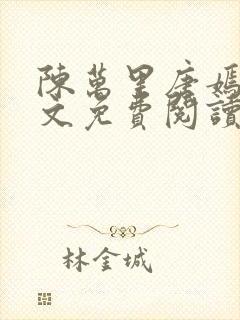 陳萬里唐嫣
文免費閱讀
林金城